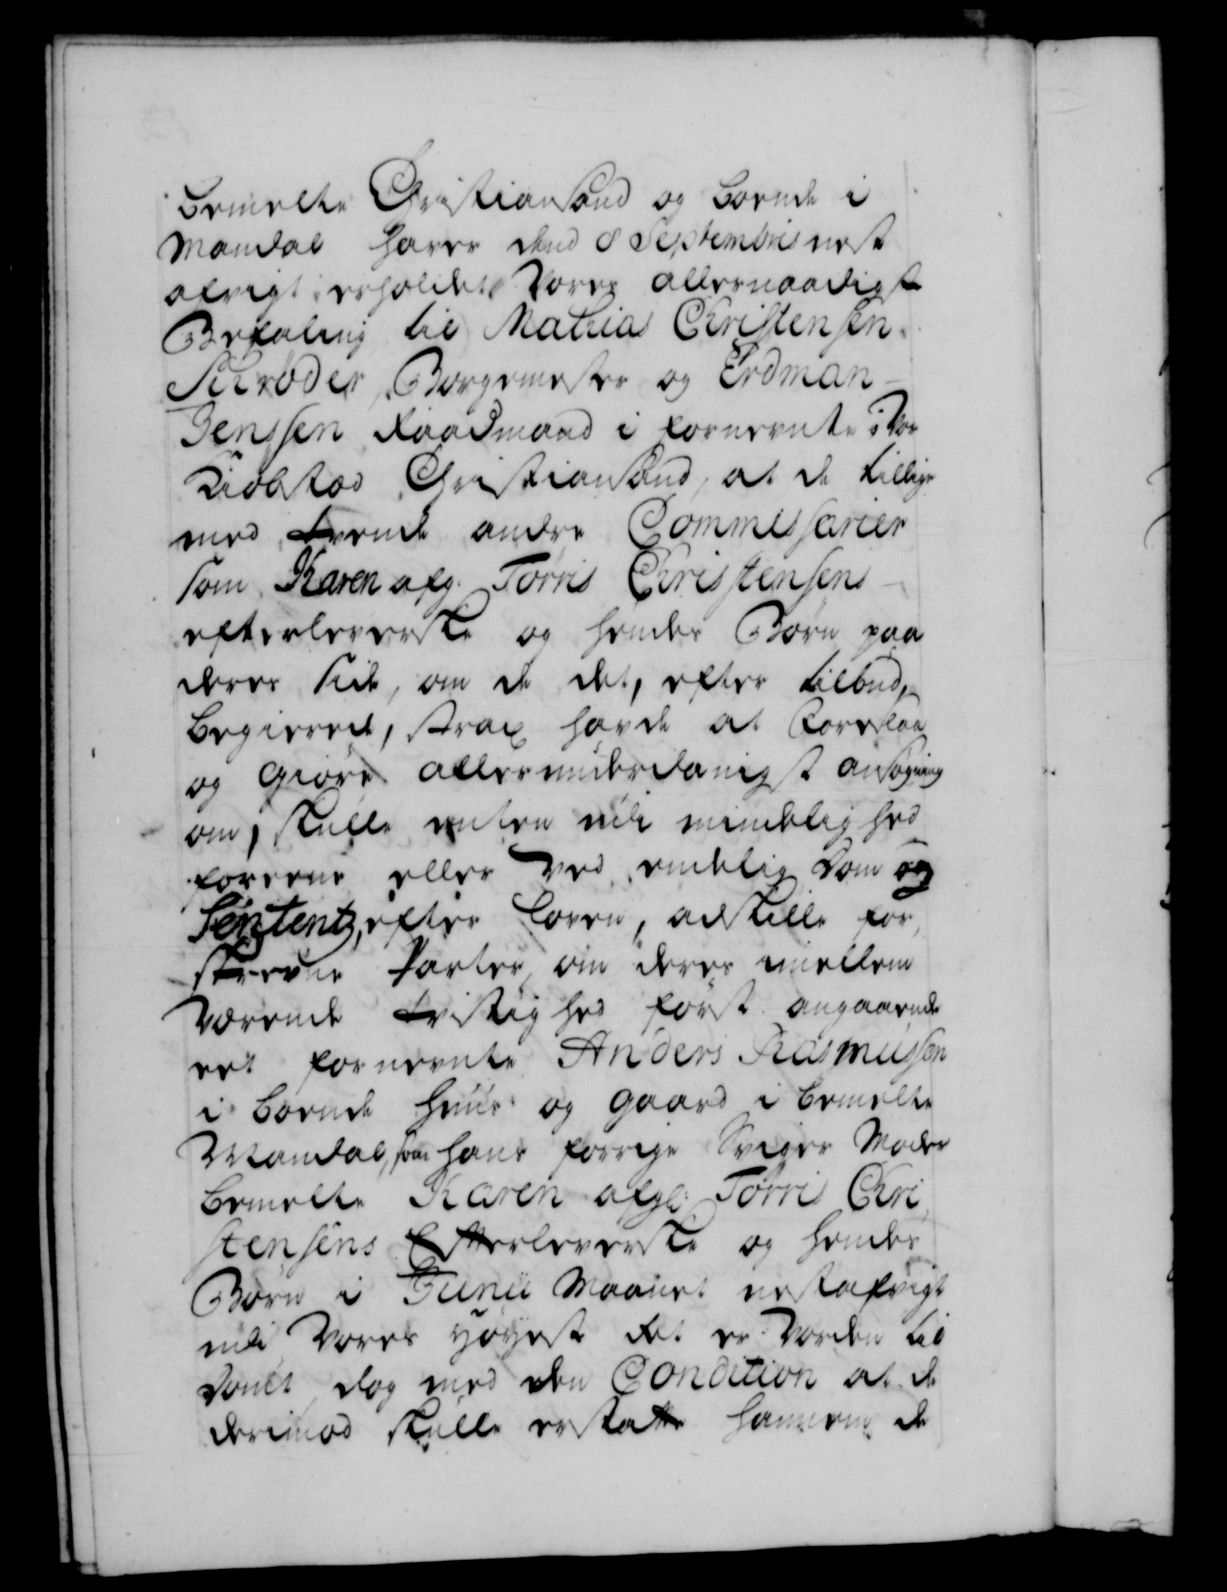 bemelte Christiansand og boende i
Mandal haver dend 8 Septembris nest
afvigt erholdet Vores allernaadigst
Befaling til Mathias Christensen
Schrøder, Borgemester og Erdman
Jenssen Raadmand i fornevnte Vor
Kiøbstad Christiansand, at de tillige
med tvende andre Commissarier
som Karen afg. Torris Christensens
efterleverske og hendes Børn paa
deres side, om de det, efter tilbud,
begierede, strax hafde at foreslaa
og giøre allerunderdanigst ansøgning
om, skulle enten udi mindelighed
foreene eller ved endelig dom og
Sententz, efter loven, adskille for,
skrevne Parter, om deres imellem
værende tvistighed først angaaende
eet fornevnte Anders Rasmussen
i boende huus og gaard i bemelte
Mandal, som hans forrige Sviger Moder
bemelte Karen afg. Torris Chri
stensens Efterleverske og hendes
Børn i Junii Maanet nestafvigt
udi Vores Høyeste Ret er vorden til
dømt, dog med den Condition at de
derimod skulle erstatte hannem de